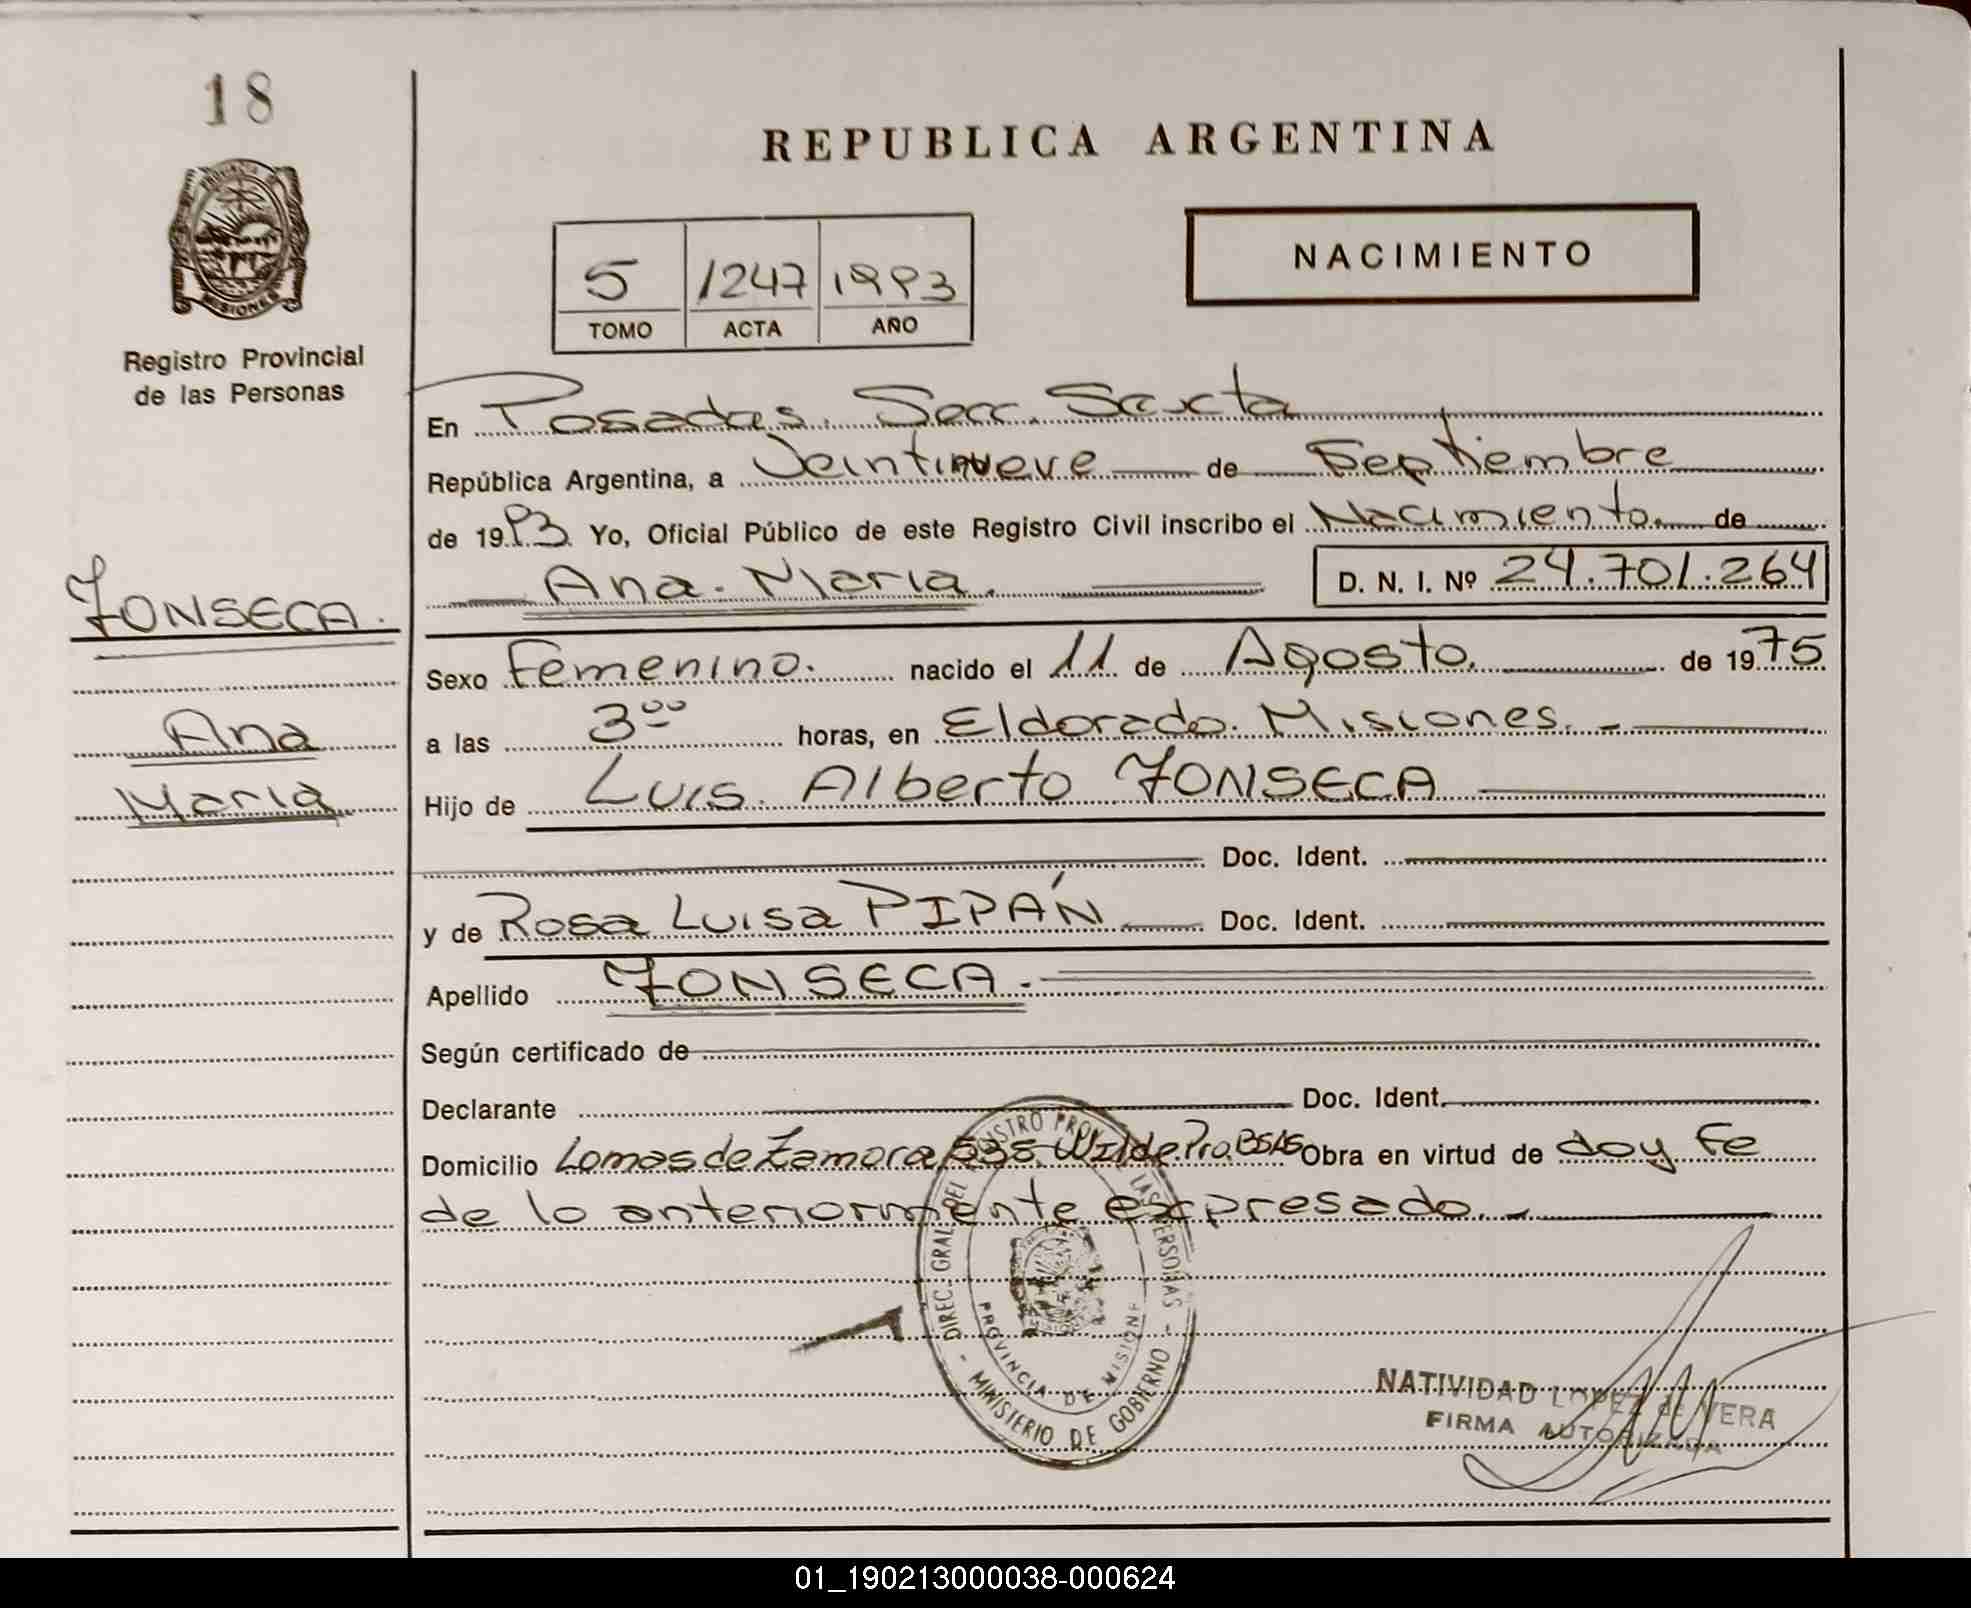 18
REPUBLICA ARGENTINA
PROVINCIA DE
MISIONES
Registro Provincial
de las Personas
NACIMIENTO
5 1247 1993
TOMO ACTA AÑO
En Posadas. Secc. Sexta
República Argentina, a Veintinueve de Septiembre
de 1993 Yo, Oficial Público de este Registro Civil inscribo el Nacimiento. de
Ana. Maria. D. N. I. Nº 24.701.264
FONSECA.
Ana
Maria
Sexo Femenino. nacido el 11 de Agosto. de 1975
a las 3⁰⁰ horas, en Eldorado. Misiones. -
Hijo de Luis. Alberto FONSECA
Doc. Ident.
y de Rosa Luisa PIPÁN Doc. Ident.
Apellido FONSECA.
Según certificado de
Declarante Doc. Ident.
Domicilio Lomas de Zamora 538 Wilde. Pro. BsAs Obra en virtud de doy Fe
de lo anteriormente expresado. -
DIREC. GRAL. DEL REGISTRO PROV. LAS PERSONAS - MINISTERIO DE GOBIERNO -
PROVINCIA DE MISIONES
NATIVIDAD LOPEZ de VERA
FIRMA AUTORIZADA
01_190213000038-000624